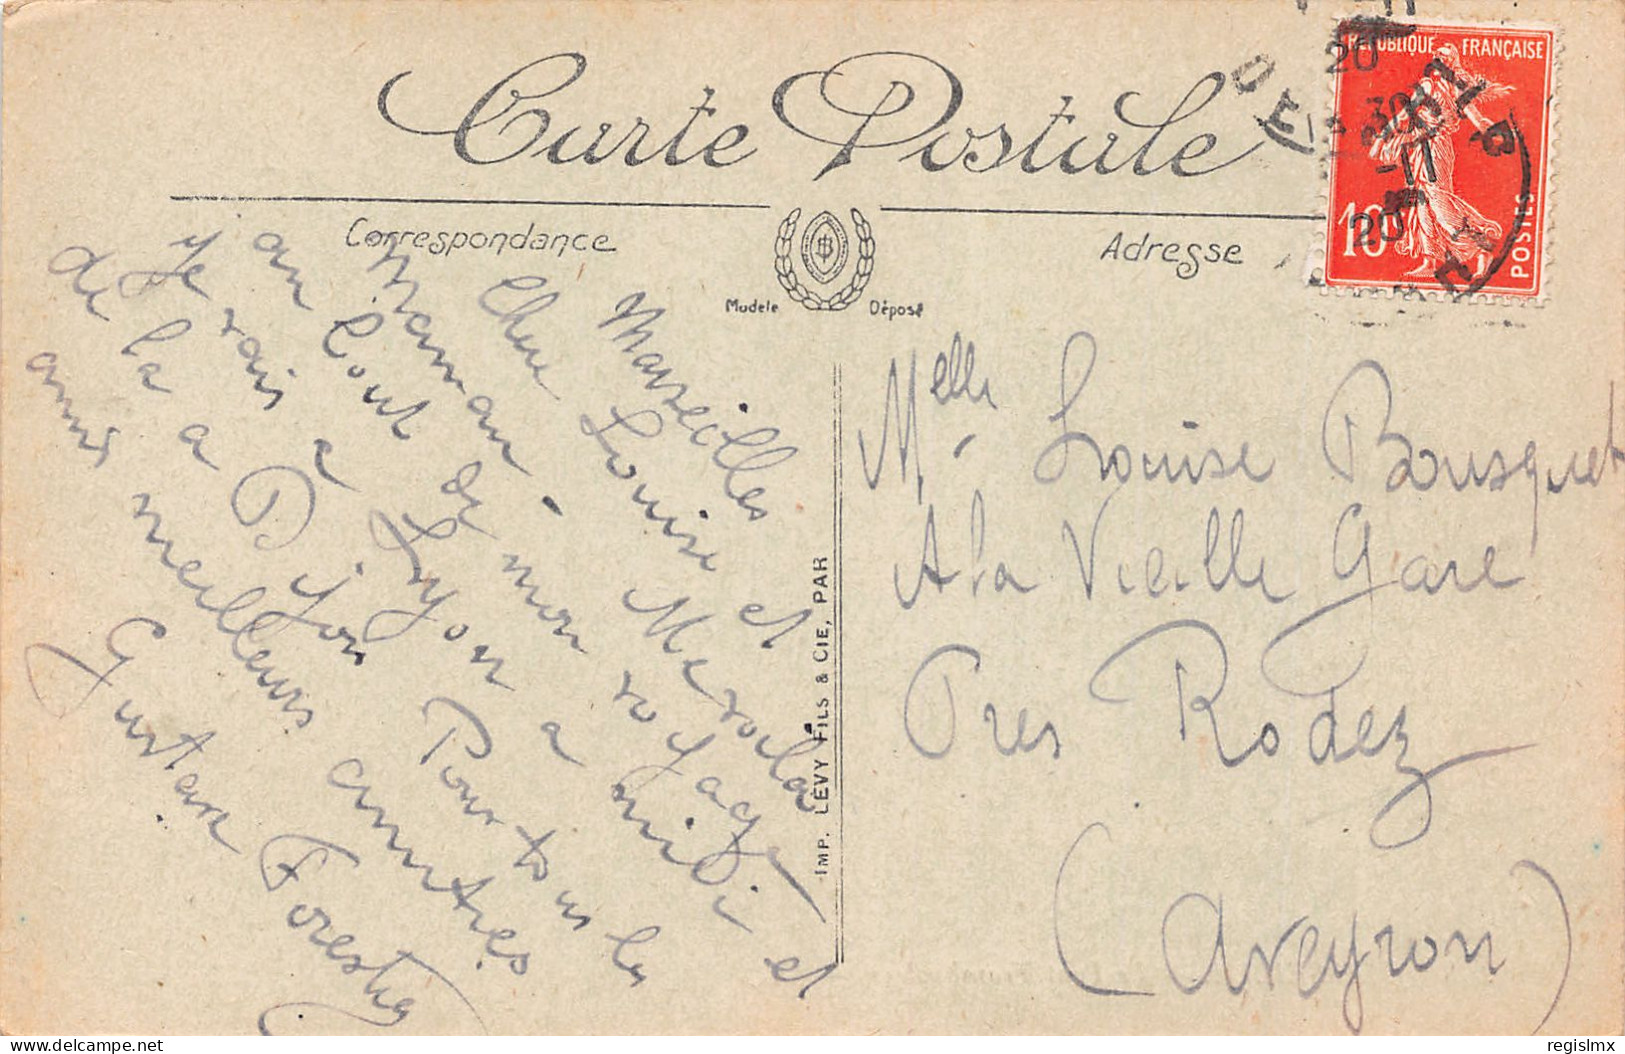 Carte Postale
Correspondance
Adresse
Modèle Déposé
RÉPUBLIQUE FRANÇAISE
10
POSTES
20
30
-11
20
Marseilles
Chere Louise et
Maman. Me voila
au bout de mon voyage
je vais a Lyon a midi et
de la a Dijon Pour tous les
amis meilleurs amitres
Gustave Forestier
IMP. LÉVY FILS & CIE, PAR
Melle Louise Bousquet
A la Vieille Gare
Pres Rodez
(Aveyron)
delcampe.net
regislmx